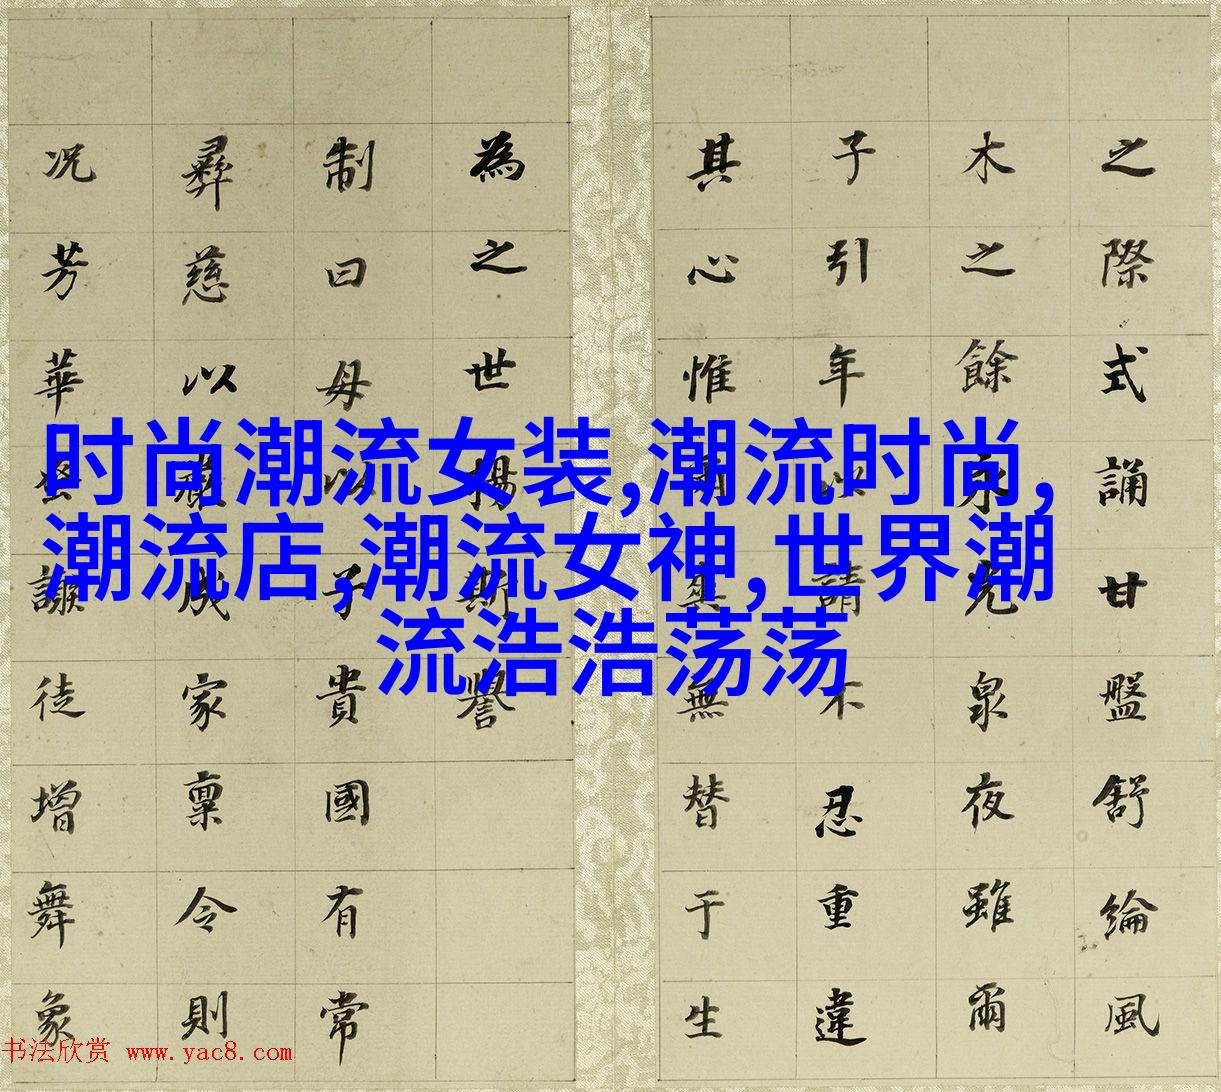 之際式誦甘盤舒綸風
木之餘永光泉夜雖爾
子引年以請不忍重違
其心惟無替于生
為之世揚斯譽
制曰母以子貴國有常
彝慈以嚴成家稟令則
況芳華徒增舞象
时尚潮流女装,潮流时尚,
潮流店,潮流女神,世界潮
流浩浩荡荡
书法欣赏 www.yac8.com